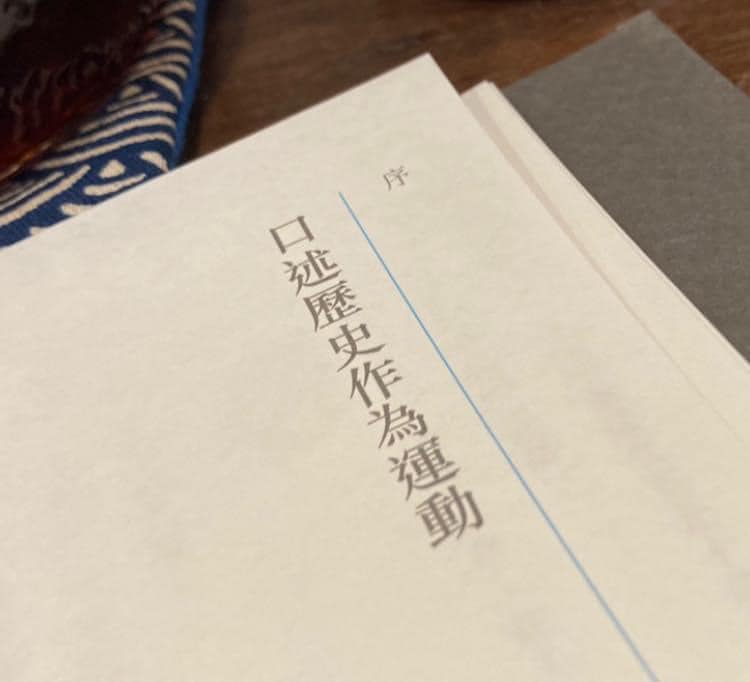 序
口述歷史作為運動